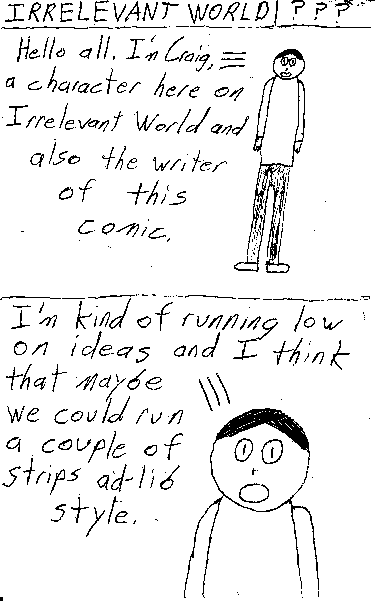 IRRELEVANT WORLD | ? ? ?
Hello all. I'm Craig,
a character here on
Irrelevant World and
also the writer
of this
comic.
I'm kind of running low
on ideas and I think
that maybe
we could run
a couple of
strips ad-lib
style.